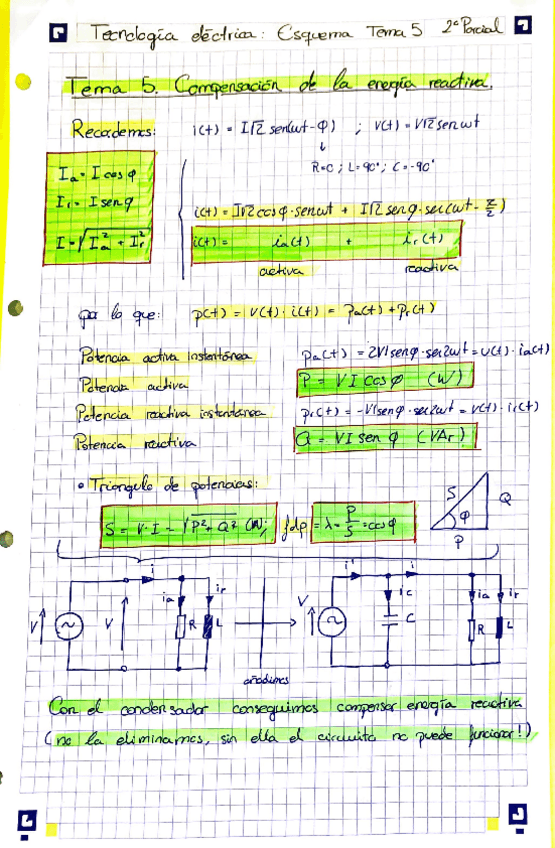 Tecnología eléctrica: Esquema Tema 5 2º Parcial
Tema 5. Compensación de la energía reactiva.
Recordemos: i(t) = I√2 sen(ωt - φ) ; v(t) = V√2 sen ωt
R=0 ; L=90° ; C=-90°
Ia = I cos φ
Ir = I sen φ
I = √(Ia² + Ir²)
i(t) = I√2 cos φ · sen ωt + I√2 sen φ · sen(ωt - π/2)
i(t) = ia(t) + ir(t)
activa reactiva
por lo que: p(t) = v(t) · i(t) = pa(t) + pr(t)
Potencia activa instantánea pa(t) = 2VI sen φ · sen 2ωt = v(t) · ia(t)
Potencia activa P = V I cos φ (W)
Potencia reactiva instantánea pr(t) = -VI sen φ · sen 2ωt = v(t) · ir(t)
Potencia reactiva Q = VI sen φ (VAr)
• Triángulo de potencias:
S = V · I = √(P² + Q²) (W); fdp = λ = P/S = cos φ
S Q φ P
V V i ia ir R L
añadimos
V i' i ic C ia ir R L
Con el condensador conseguimos compensar energía reactiva
(no la eliminamos, sin ella el circuito no puede funcionar!)